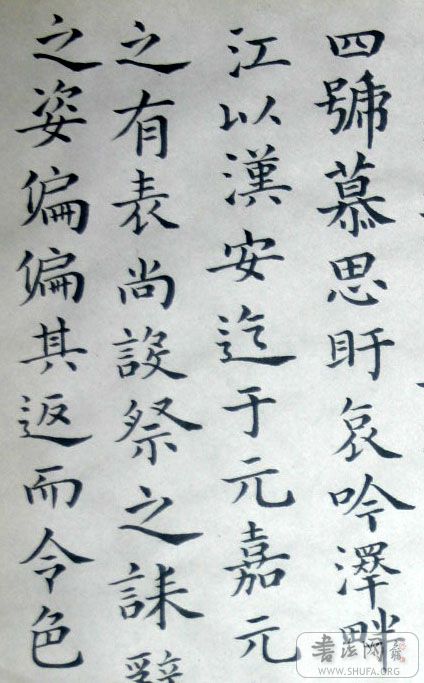 四號慕思盱哀吟澤畔
江以漢安迄于元嘉元
之有表尚設祭之誄辭
之姿偏偏其返而令色
書法网
WWW.SHUFA.ORG